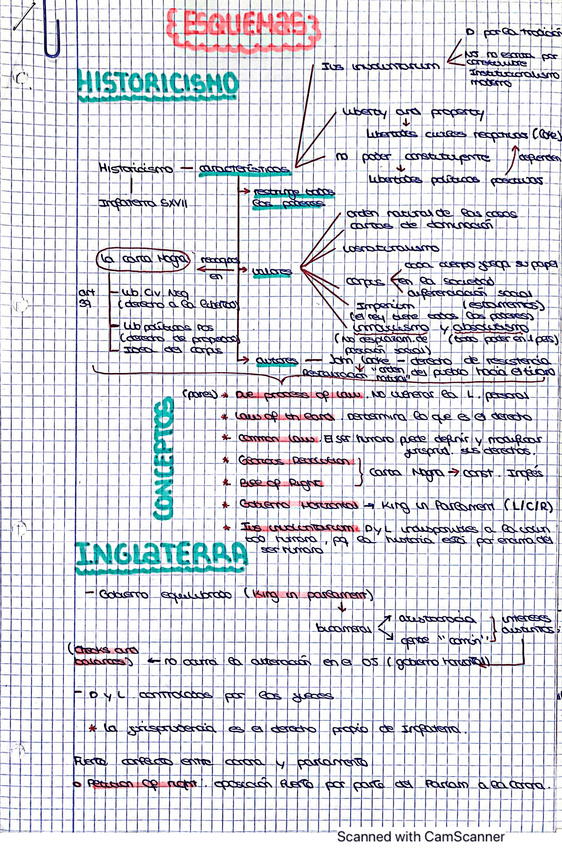 ESQUEMAS
HISTORICISMO
Ius involuntarium
D por la tradición
No se escrita por
constituyente
Institucionalismo
moderno
Liberty and property
Libertades civiles negativas (Core)
no poder constituyente
dependen
Libertades políticas positivas
Historicismo — características
Inglaterra SXVII
restringe todos
los poderes
orden natural de las cosas
cartas de dominación
Iusnaturalismo
La carta Magna
recogidos
en
valores
corpus
cada cuerpo juega su papel
en la sociedad
diferenciación social
art
39
Lib. Civ. Neg
(derecho a la libertad)
Imperium (estamentos)
(el rey tiene todos los poderes)
Lib políticas pos
(derecho de propiedad)
Idea del corpus
y absolutismo
(No respetan de
posición social)
(todo poder en 1 pers)
autores — John Locke – derecho de resistencia
Restauración "orden
natural"
del pueblo hacia el tirano
CONCEPTOS
* Due process of law. No vulnerar la L. personal
* Law of the land. determina lo que es el derecho
* Common law. El ser humano puede definir y modificar
jurisprud. sus derechos.
* Glorious Revolution
* Bill of Right
Carta Magna → const. Inglés
* Gobierno Horizontal → King in Parliament (L/C/R)
* Ius involuntarium D y L indisponibles a la volun
tad humana, pq la historia está por encima del
ser humano
INGLATERRA
– Gobierno equilibrado (King in parliament)
bicameral
aristocracia
gente "común"
intereses
distintos
(checks and
balances) ← no ocurra la alteración en el OS (gobierno horizontal)
– D y L controlados por los jueces
* La jurisprudencia es el derecho propio de Inglaterra.
Fuerte conflicto entre corona y parlamento
o Petition of right. oposición fuerte por parte del Parlam a la corona.
Scanned with CamScanner